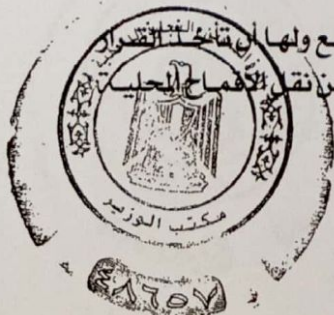 ع ولها أن تأخذ القرار
ن نقل الأقماح المحلية
مكتب الوزير
٨٦٥٧